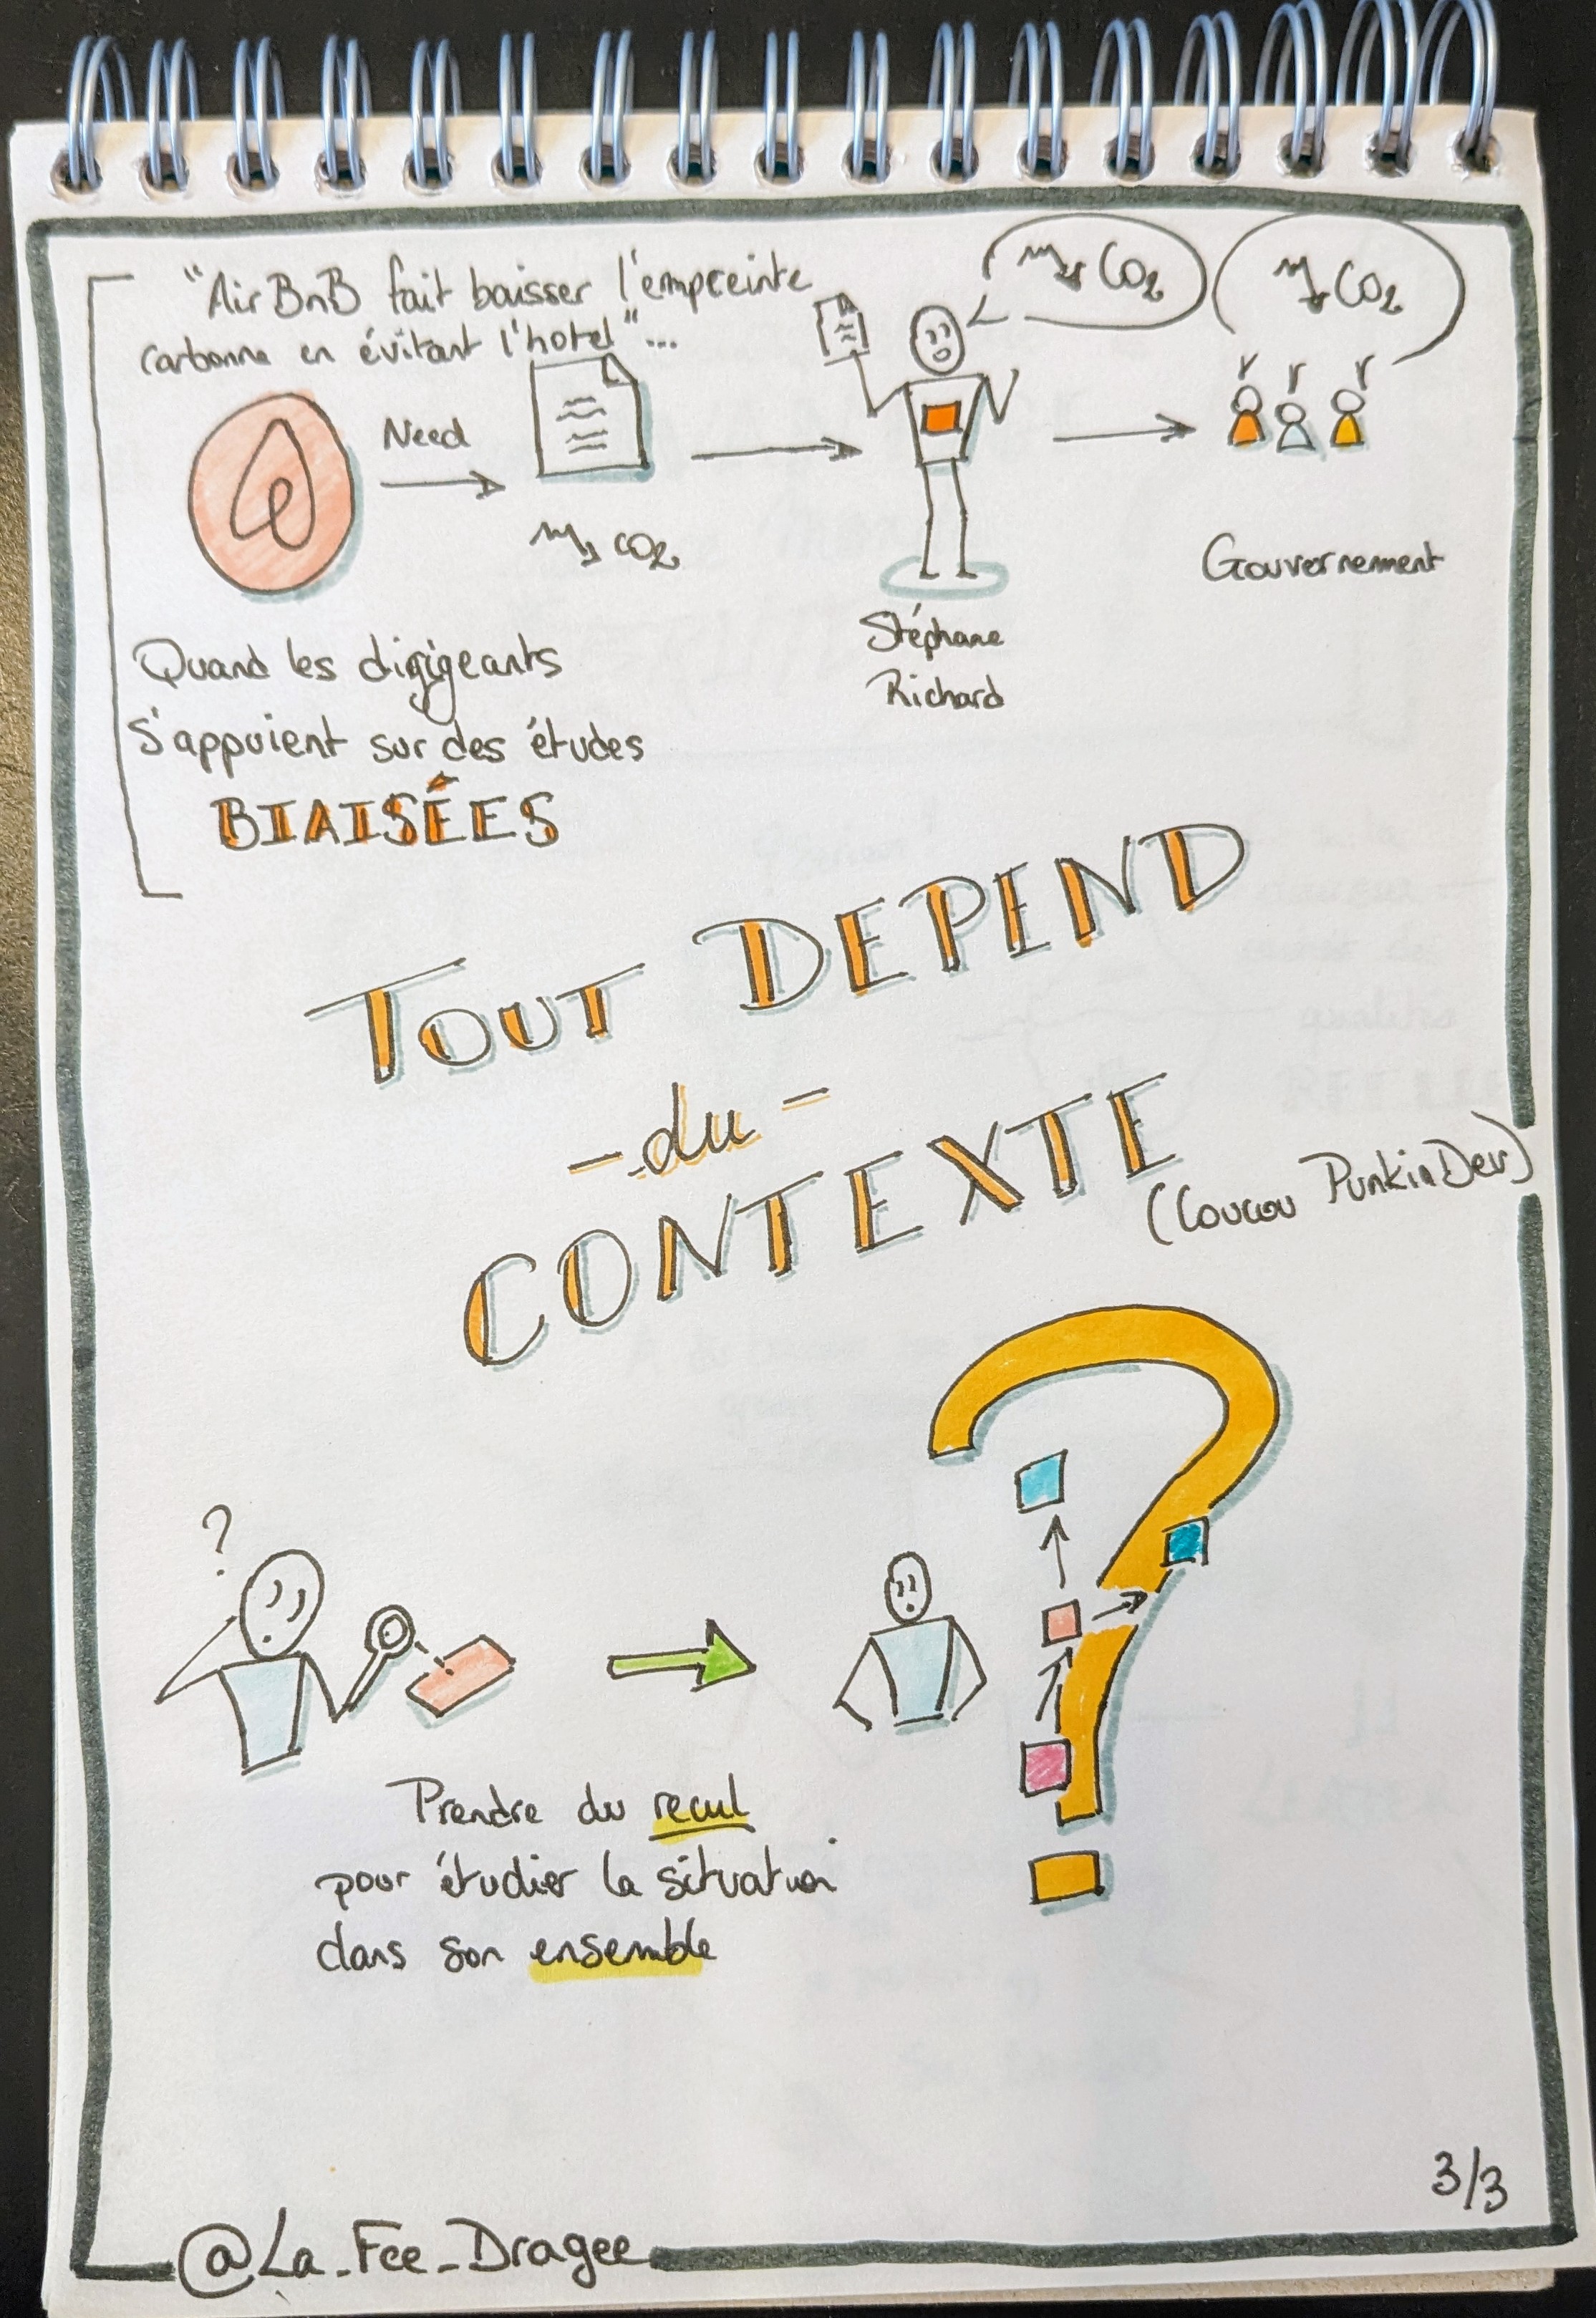 "AirBnB fait baisser l'empreinte
carbonne en évitant l'hotel"...
Need
CO2
CO2
CO2
Stéphane
Richard
Gouvernement
Quand les dirigeants
s'appuient sur des études
BIAISÉES
TOUT DEPEND
- du -
CONTEXTE
(Coucou PunkinDev)
?
?
Prendre du recul
pour étudier la situation
dans son ensemble
3/3
@La_Fee_Dragee